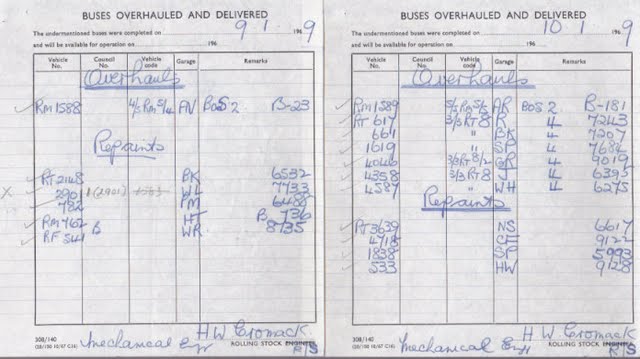 BUSES OVERHAULED AND DELIVERED
The undermentioned buses were completed on 9 1 1969
and will be available for operation on 196
Vehicle No. Council No. Vehicle code Garage Remarks
Overhauls
RM1588 4/5 RM 5/4 AV BOS 2 B-23
Repaints
RT 2148 BK 6532
2901 1(2901) WL 7733
782 PM 6488
RM 762 HT B 736
RF 541 B WR 8735
308/140
Mechanical Engr
H W Cromack
ROLLING STOCK ENGINEER
BUSES OVERHAULED AND DELIVERED
The undermentioned buses were completed on 10 1 1969
and will be available for operation on 196
Vehicle No. Council No. Vehicle code Garage Remarks
Overhauls
RM1589 5/5 RM 5/6 AR BOS 2 B-181
RT 617 3/3 RT 8 R 4 7243
661 " BK 4 7207
1619 " SP 4 7684
4046 3/3 RT 8/2 GR 4 9019
4358 3/3 RT 8 J 4 6395
4587 " WH 4 6275
Repaints
RT 3639 NS 6617
4718 CF 9122
1838 SP 5993
533 HW 9128
308/140
Mechanical Engr
H W Cromack
ROLLING STOCK ENGINEER